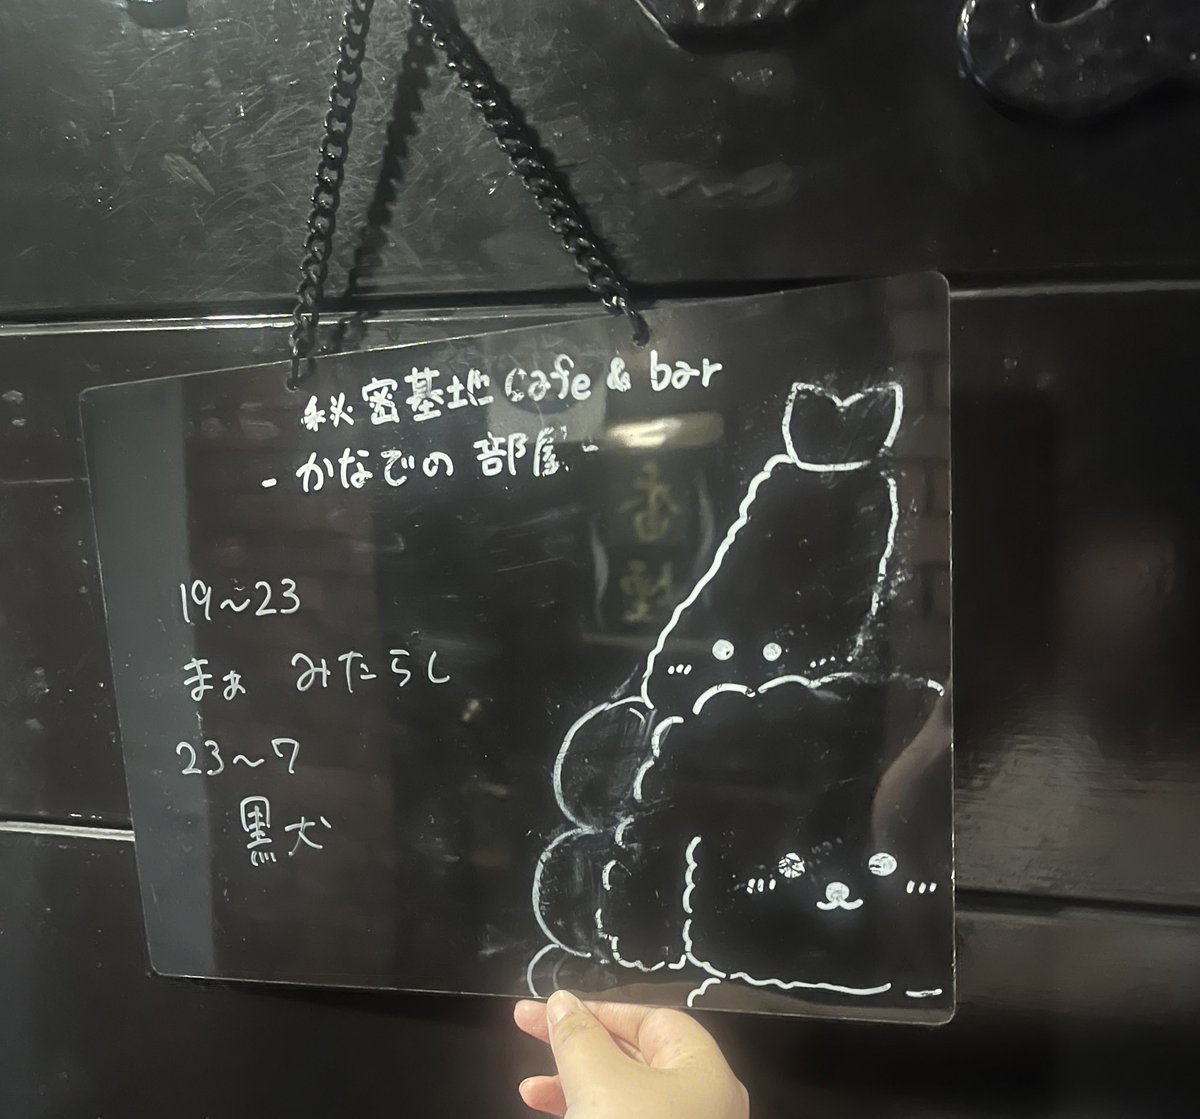 秘密基地 cafe & bar
- かなでの部屋 -
19~23
まぁ みたらし
23~7
黒犬